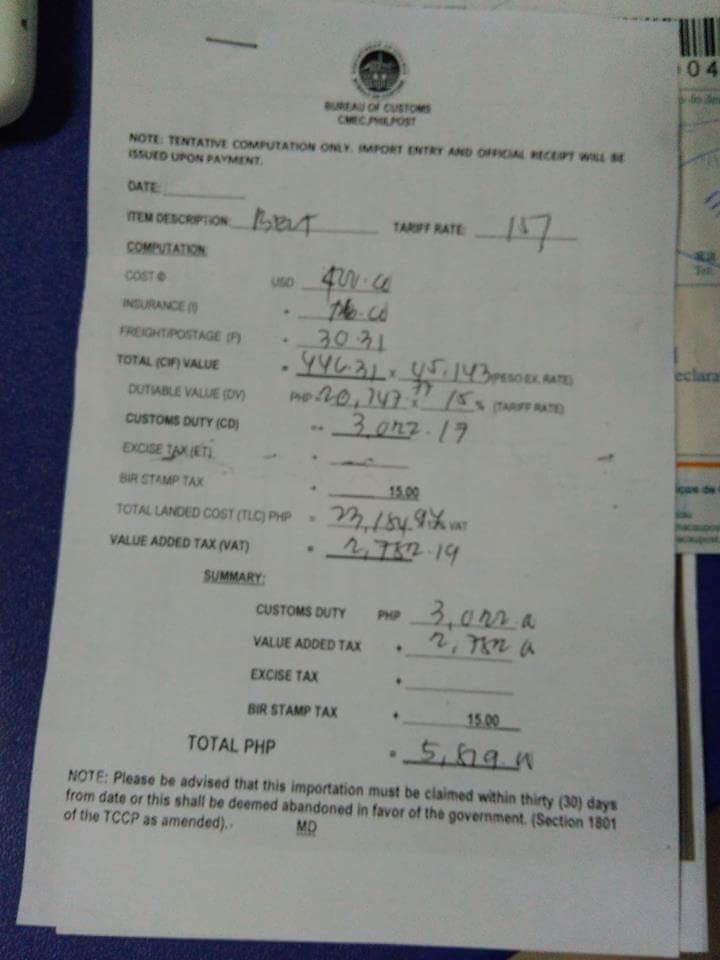 BUREAU OF CUSTOMS
CMEC, PHILPOST
NOTE: TENTATIVE COMPUTATION ONLY. IMPORT ENTRY AND OFFICIAL RECEIPT WILL BE
ISSUED UPON PAYMENT.
DATE:
ITEM DESCRIPTION: TARIFF RATE: 15%
COMPUTATION:
COST © USD 400.00
INSURANCE (I) + 16.00
FREIGHT/POSTAGE (F) + 30.31
TOTAL (CIF) VALUE = 446.31 x 45.143 (PESO EX. RATE)
DUTIABLE VALUE (DV) PHP = 20,147.77 x 15 % (TARIFF RATE)
CUSTOMS DUTY (CD) = 3,022.17
EXCISE TAX (ET) +
BIR STAMP TAX + 15.00
TOTAL LANDED COST (TLC) PHP = 23,184.94 VAT
VALUE ADDED TAX (VAT) = 2,782.19
SUMMARY:
CUSTOMS DUTY PHP 3,022.00
VALUE ADDED TAX + 2,782.00
EXCISE TAX +
BIR STAMP TAX + 15.00
TOTAL PHP = 5,819.00
NOTE: Please be advised that this importation must be claimed within thirty (30) days
from date or this shall be deemed abandoned in favor of the government. (Section 1801
of the TCCP as amended). MD
04
eclara